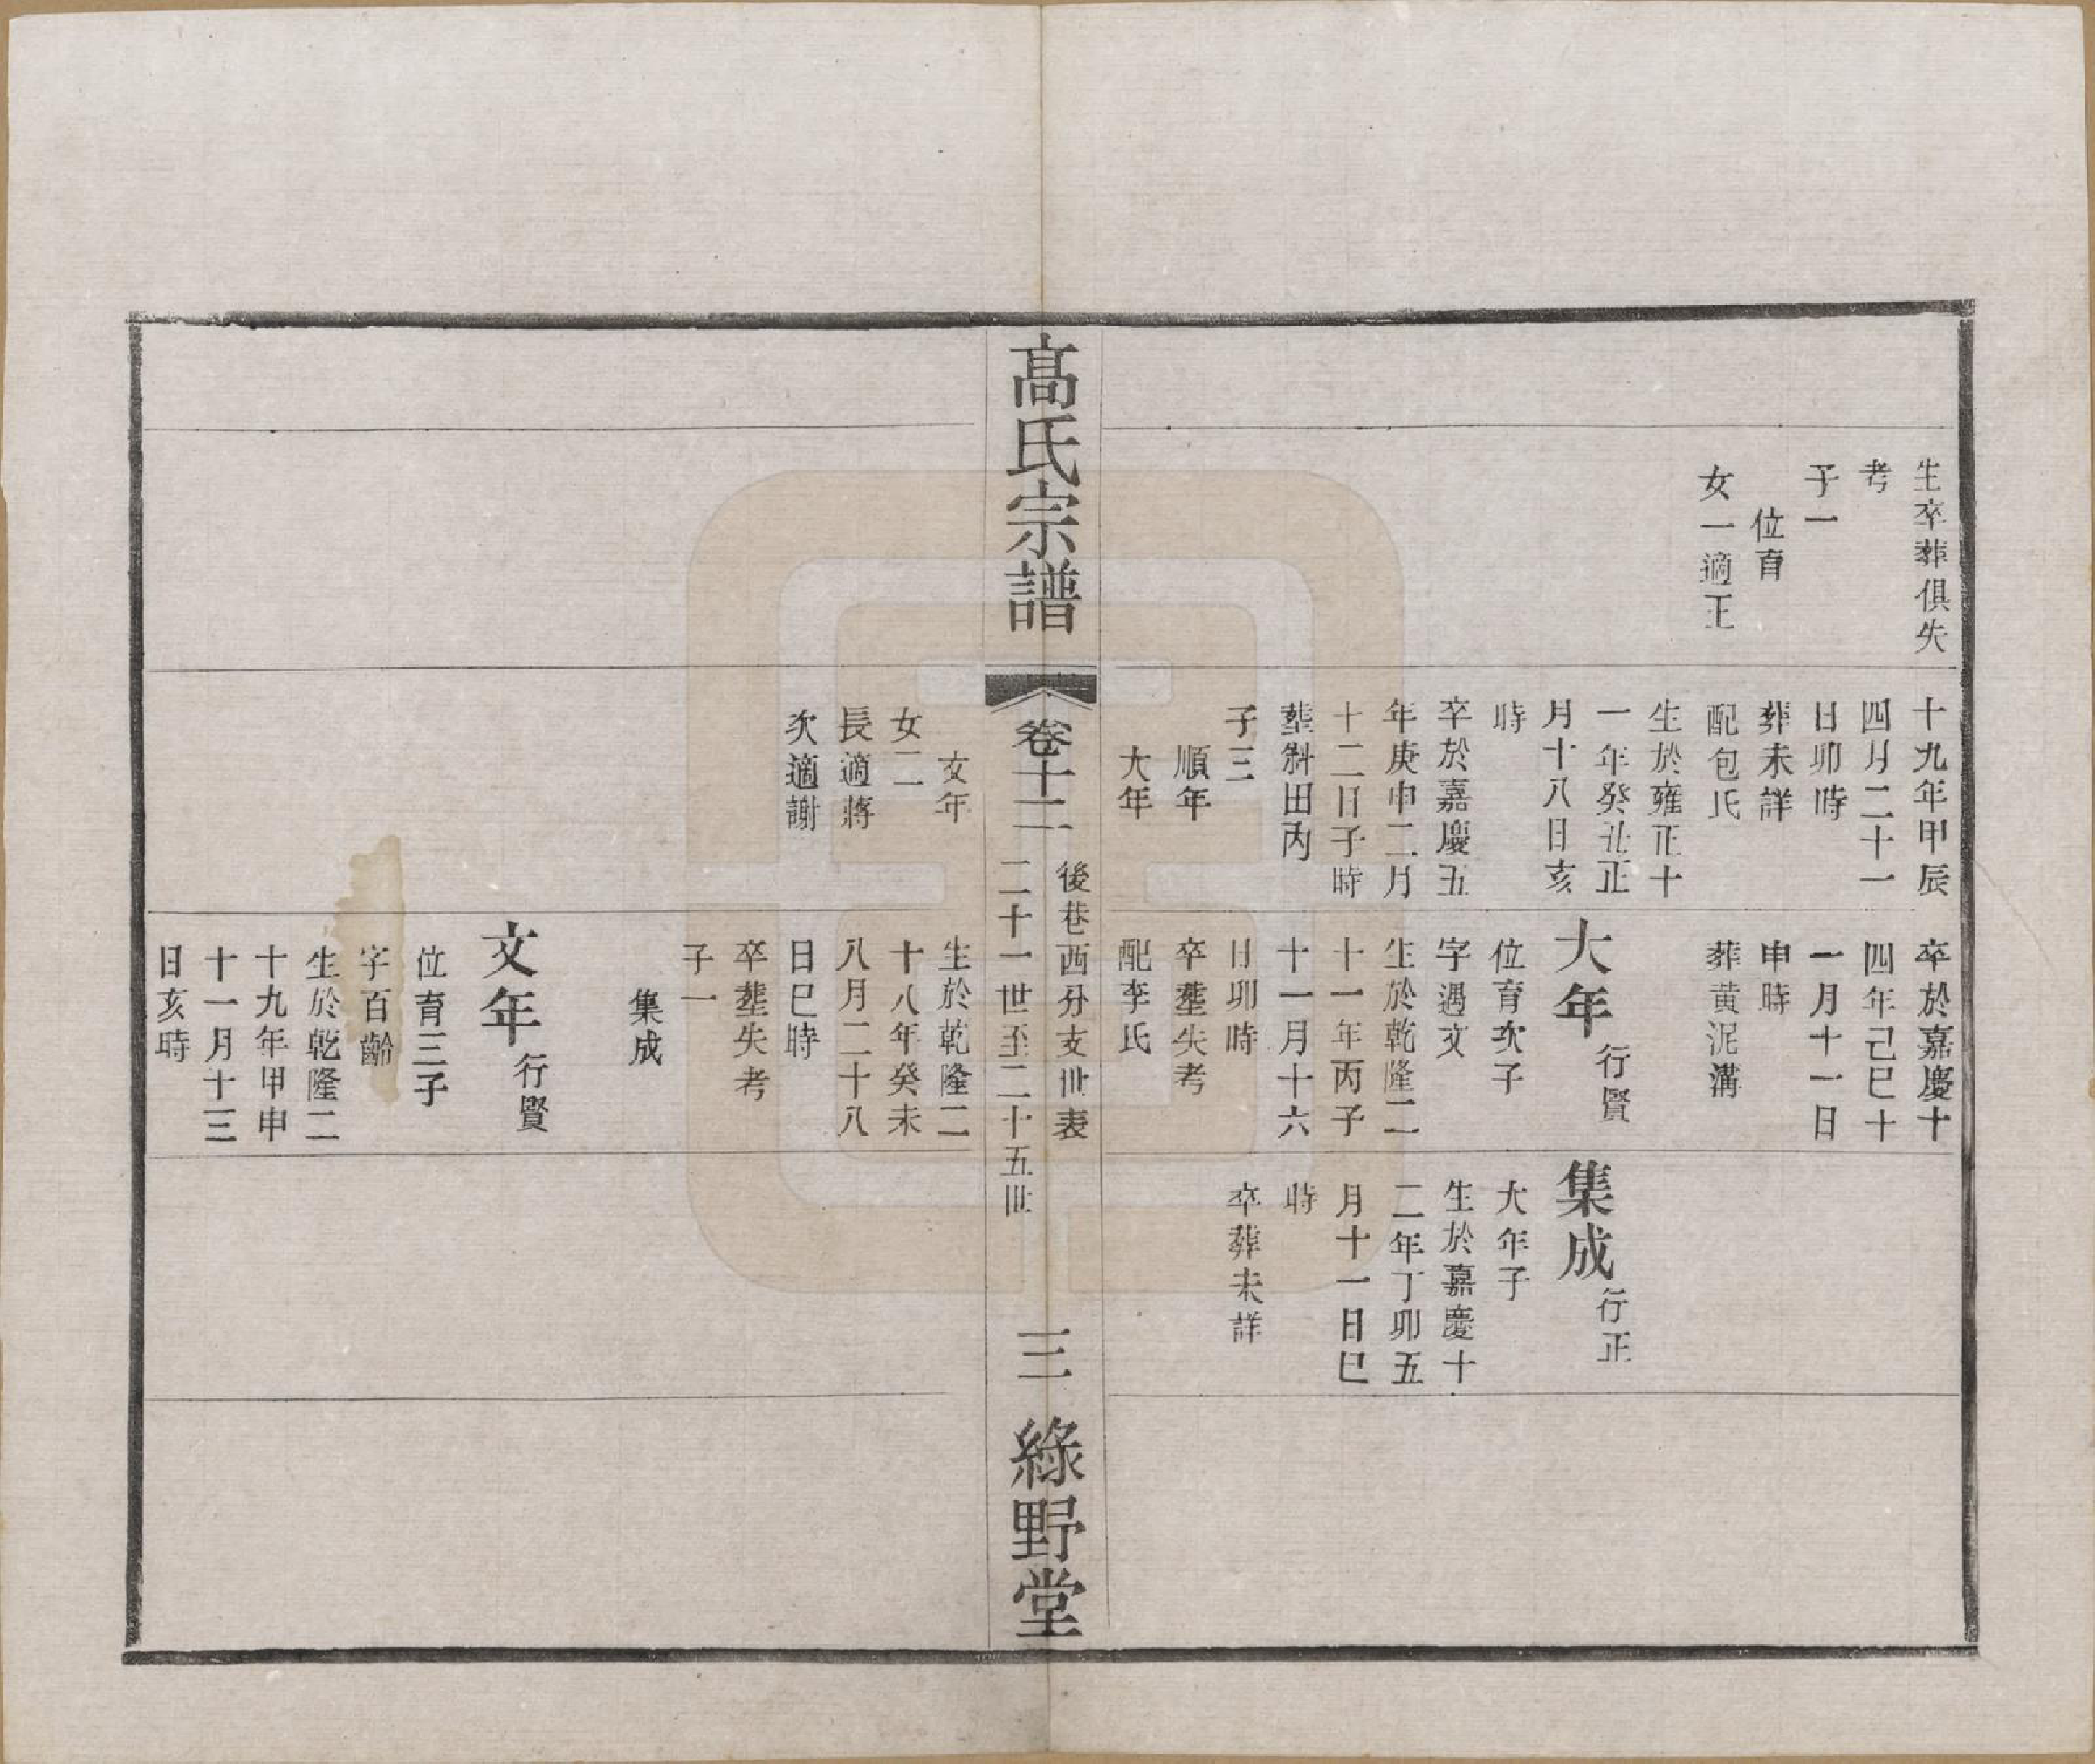 生卒葬俱失
考
子一
位育
女一適王
十九年甲辰
四月二十一
日卯時
葬未詳
配包氏
生於雍正十
一年癸丑正
月十八日亥
時
卒於嘉慶五
年庚申二月
十二日子時
塟斜田丙
子三
順年
大年
卒於嘉慶十
四年己巳十
一月十一日
申時
葬黄泥溝
大年行賢
位育次子
字遇文
生於乾隆二
十一年丙子
十一月十六
日卯時
卒塟失考
配李氏
集成行正
大年子
生於嘉慶十
二年丁卯五
月十一日巳
時
卒葬未詳
髙氏宗譜
卷十二
後巷西分支世表
二十一世至二十五世
三
綠野堂
文年
女二
長適蔣
次適謝
生於乾隆二
十八年癸未
八月二十八
日巳時
卒塟失考
子一
集成
文年行賢
位育三子
字百齡
生於乾隆二
十九年甲申
十一月十三
日亥時